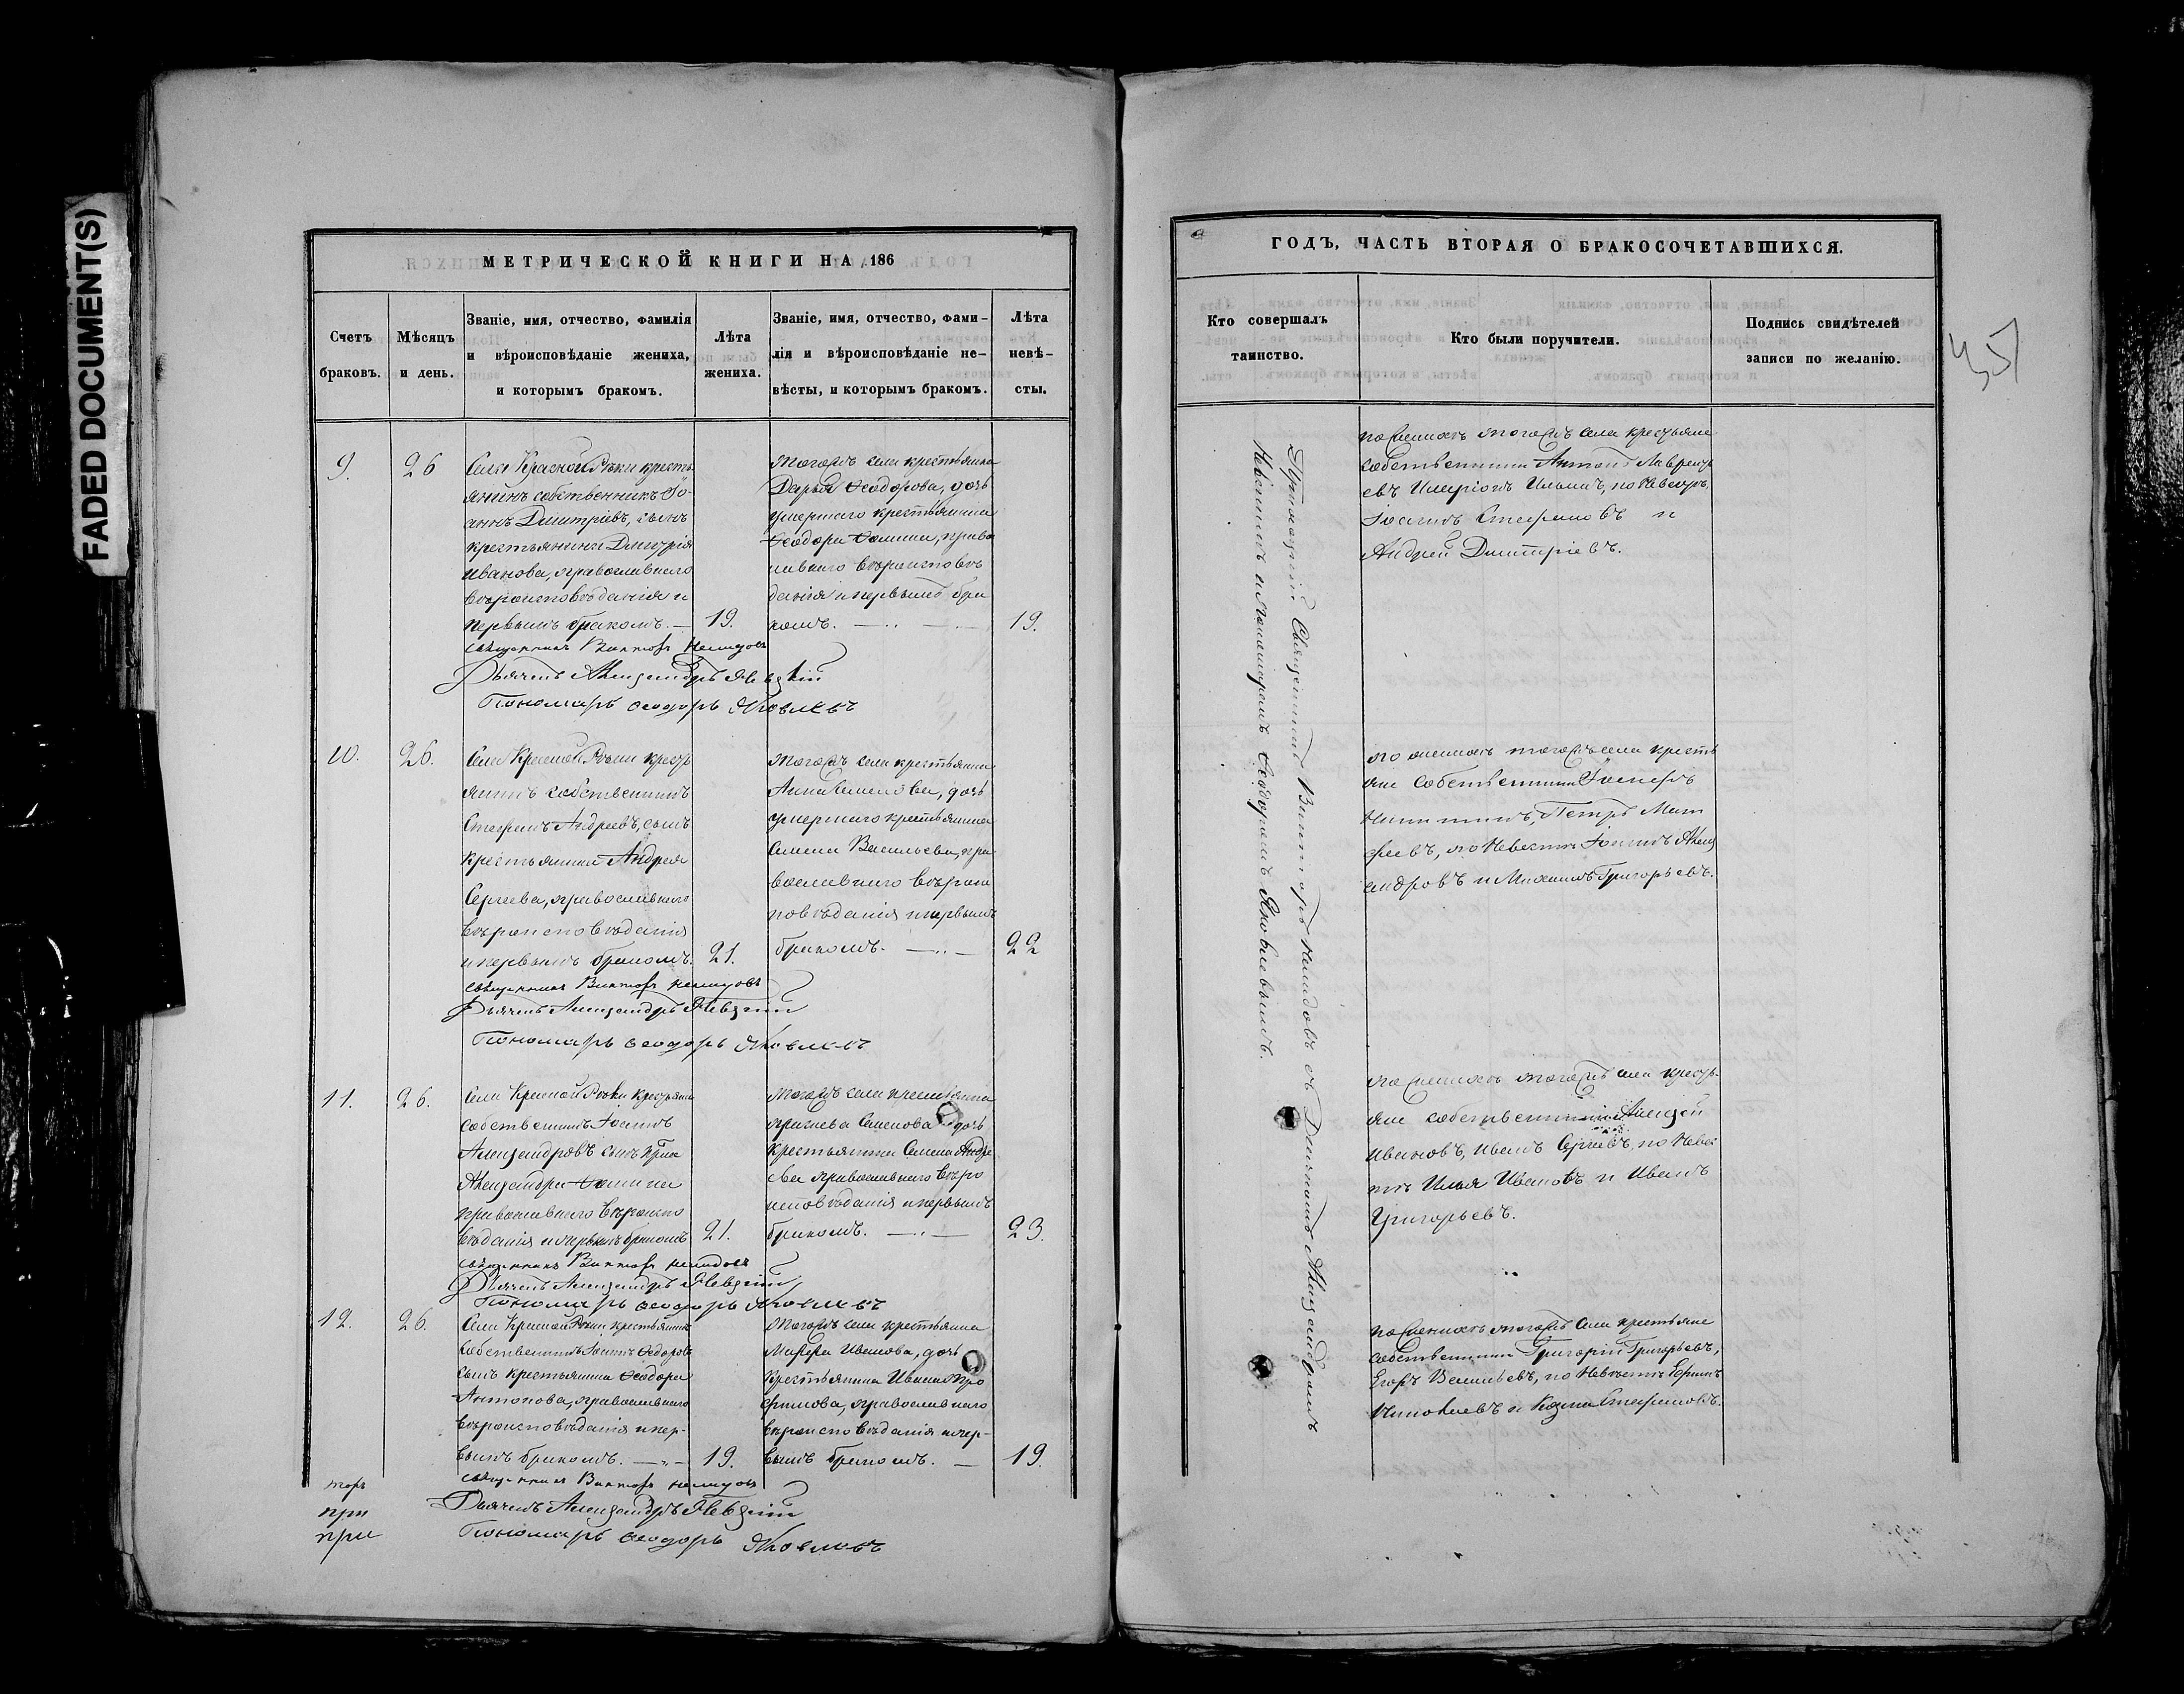 FADED DOCUMENT(S)
МЕТРИЧЕСКОЙ КНИГИ НА 186
Счетъ браковъ.
Мѣсяцъ и день.
Званіе, имя, отчество, фамилія
и вѣроисповѣданіе жениха,
и которымъ бракомъ.
Лѣта жениха.
Званіе, имя, отчество, фами-
лія и вѣроисповѣданіе не-
вѣсты, и которымъ бракомъ.
Лѣта невѣ-
сты.
9.
26
Села Красной Рѣки кресть
янинъ собственникъ Іо-
аннъ Дмитріевъ, сынъ
крестьянина Димитрія
Иванова, православнаго
вѣроисповѣданія и
первымъ бракомъ. —
19.
тогожъ села крестьянка
Дарья Ѳеодорова, дочь
умершаго крестьянина
Ѳеодора Ѳомина, право
славнаго вѣроисповѣ
данія и первымъ бра
комъ.
19.
Священникъ Викторъ
Дьячекъ Александръ Невскій
Пономарь Ѳеодоръ Яковлевъ
10.
26.
Села Красной Рѣки кресть
янинъ собственникъ
Стефанъ Андреевъ, сынъ
крестьянина Андрея
Сергеева, православнаго
вѣроисповѣданія
и первымъ бракомъ.
21.
тогожъ села крестьянка
Анна Семенова, дочь
умершаго крестьянина
Семена Васильева, пра
вославнаго вѣроис
повѣданія и первымъ
бракомъ.
22
Священникъ Викторъ
Дьячекъ Александръ Невскій
Пономарь Ѳеодоръ Яковлевъ
11.
26.
Села Красной Рѣки
собственникъ Іоаннъ
Александровъ сынъ
Александра Ѳомина
православнаго вѣроиспо
вѣданія и первымъ бракомъ
21.
тогожъ села крестьянка
Семенова дочь
крестьянина Семена Андре
ева православнаго вѣро
исповѣданія и первымъ
бракомъ.
23.
Священникъ Викторъ
Дьячекъ Александръ Невскій
Пономарь Ѳеодоръ Яковлевъ
12.
26.
Села Красной Рѣки крестьянинъ
собственникъ Іоаннъ Ѳедоровъ
сынъ крестьянина Ѳеодора
Антонова, православнаго
вѣроисповѣданія и пер-
вымъ бракомъ.
19.
тогожъ села крестьянка
Марѳа Иванова, дочь
крестьянина Ивана Тро
фимова, православнаго
вѣроисповѣданія и пер-
вымъ бракомъ. —
19.
Священникъ Викторъ
Дьячекъ Александръ Невскій
Пономарь Ѳеодоръ Яковлевъ
при
при
ГОДЪ, ЧАСТЬ ВТОРАЯ О БРАКОСОЧЕТАВШИХСЯ.
45
Кто совершалъ
таинство.
Кто были поручители.
Подпись свидѣтелей
записи по желанію.
Приходскій Священникъ Викторъ съ Дьячкомъ Александромъ
Невскимъ и Пономаремъ Ѳеодоромъ Яковлевымъ.
по женихѣ тогожъ села крестьяне
собственники Антонъ Лаврентъ
евъ Иларіонъ Ильинъ, по невестѣ,
Іоаннъ Стефановъ и
Андрей Дмитріевъ.
по женихѣ тогожъ села кресть
яне собственники Іосифъ
Никитинъ, Петръ Мат
феевъ, по невестѣ Іоаннъ Алекс
андровъ и Михаилъ Григорьевъ.
по женихѣ тогожъ села кресть-
яне собственники Алексей
Ивановъ, Иванъ Сергеевъ, по невес
тѣ Илья Ивановъ и Иванъ
Григорьевъ.
по женихѣ тогожъ села крестьяне
собственники Григорій Григорьевъ,
Егоръ Васильевъ, по невѣстѣ
и Козма Стефановъ.